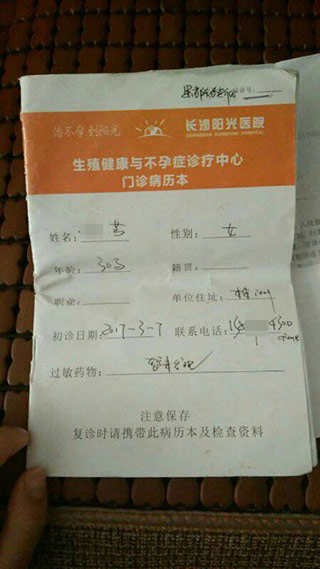 治不孕 到阳光 长沙阳光医院
CHANGSHA SUNSHINE HOSPITAL
生殖健康与不孕症诊疗中心
门诊病历本
姓名: 芳 性别: 女
年龄: 30岁 籍贯:
职业: 单位住址: 株洲
初诊日期: 2017-3-7 联系电话: 4300
过敏药物:
注意保存
复诊时请携带此病历本及检查资料